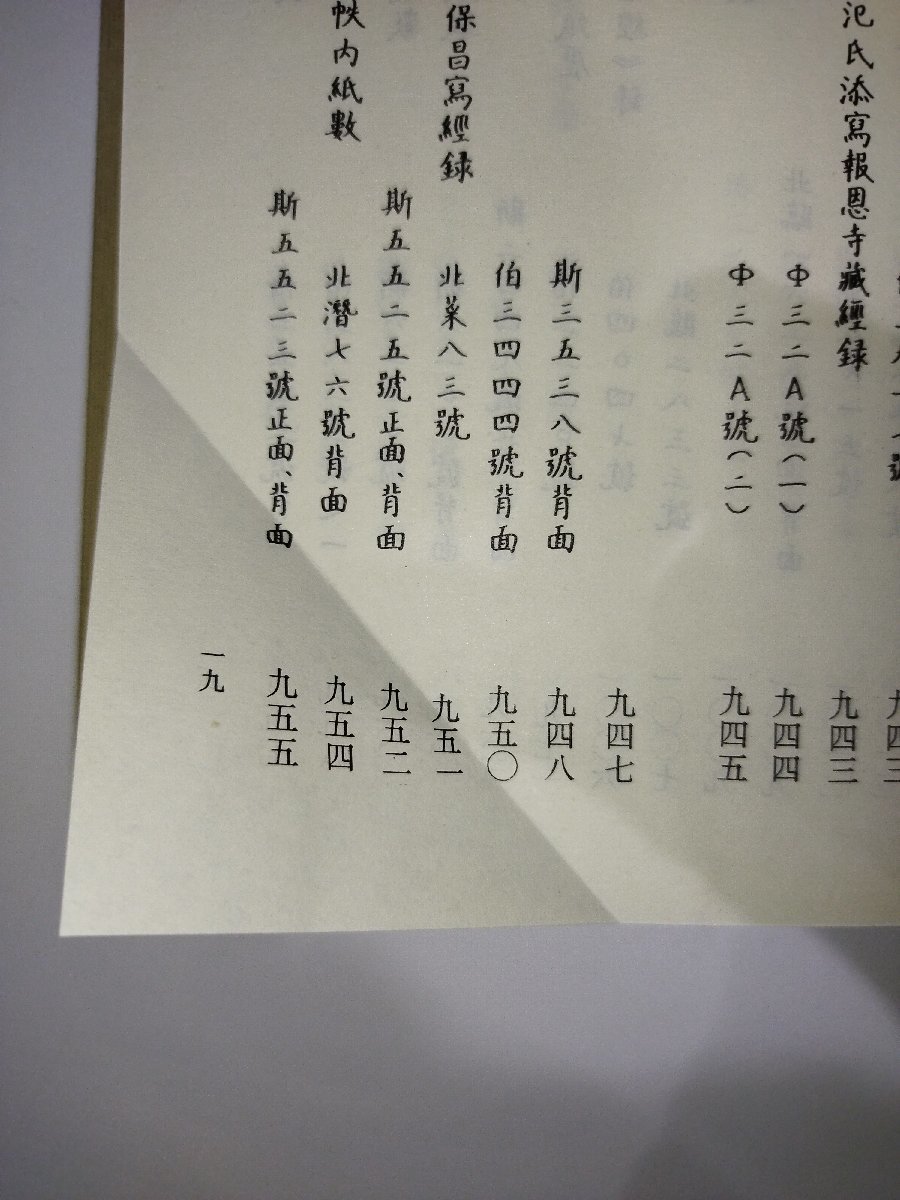 氾氏添寫報恩寺藏經録 九四三
Ф三二A號(一) 九四四
Ф三二A號(二) 九四五
九四七
斯三五三八號背面 九四八
伯三四四四號背面 九五〇
保昌寫經録 北菜八三號 九五一
斯五五二五號正面、背面 九五二
帙内紙數 北潛七六號背面 九五四
斯五五二三號正面、背面 九五五
一九